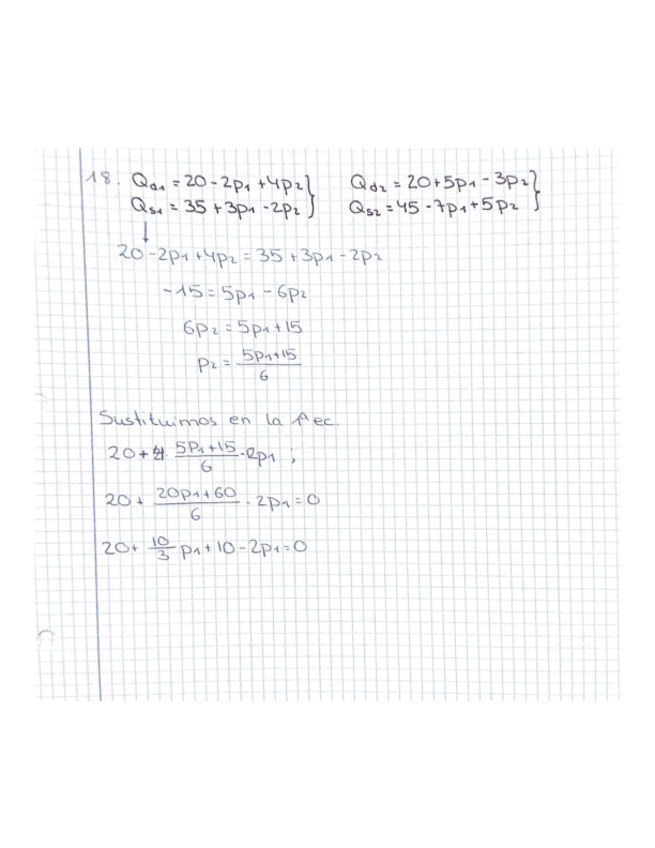 18. Qd1 = 20 - 2p1 + 4p2 } Qd2 = 20 + 5p1 - 3p2 }
Qs1 = 35 + 3p1 - 2p2 Qs2 = 45 - 7p1 + 5p2
↓
20 - 2p1 + 4p2 = 35 + 3p1 - 2p2
-15 = 5p1 - 6p2
6p2 = 5p1 + 15
p2 = (5p1 + 15)/6
Sustituimos en la 1ª ec.
20 + 4 · (5P1 + 15)/6 - 2p1 ;
20 + (20p1 + 60)/6 - 2p1 = 0
20 + 10/3 p1 + 10 - 2p1 = 0